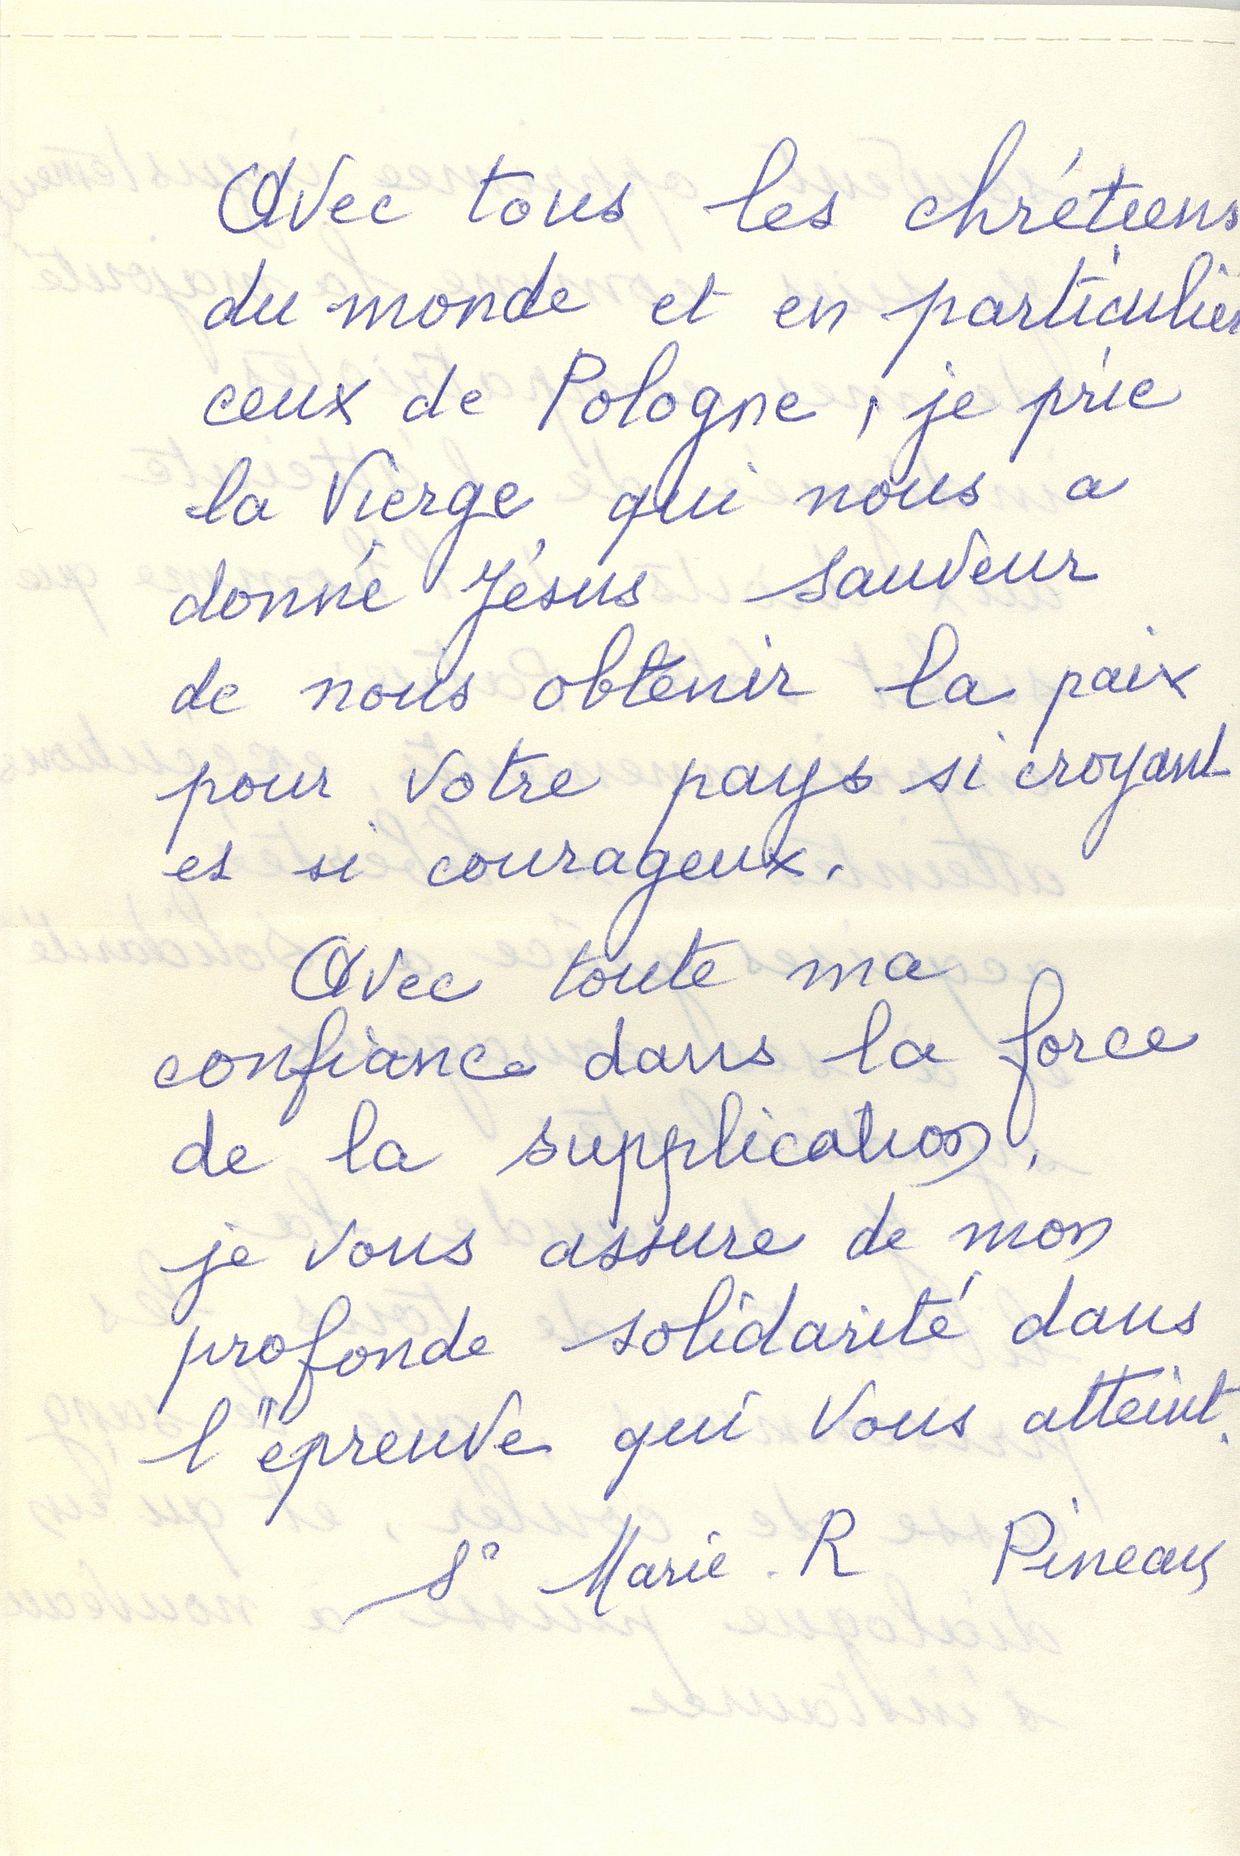 Avec tous les chrétiens
du monde et en particulier
ceux de Pologne, je prie
la Vierge qui nous a
donné Jésus sauveur
de nous obtenir la paix
pour votre pays si croyant
et si courageux.
Avec toute ma
confiance dans la force
de la supplication,
je vous assure de mon
profonde solidarité dans
l'épreuve qui vous atteint.
Sr Marie. R Pineau